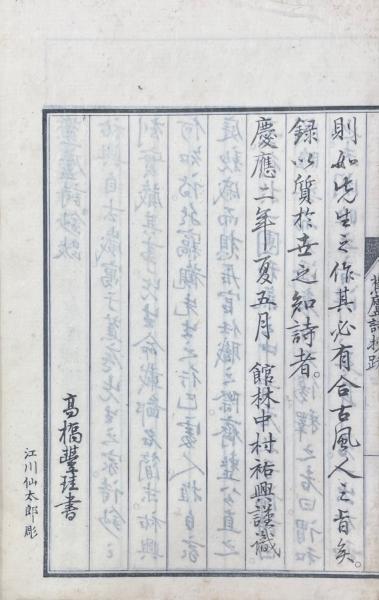 則如先生之作其必有合古風人之旨矣。
録以質於世之知詩者。
慶應二年夏五月 館林中村祐興謹識
高橋豐珪書
江川仙太郎彫